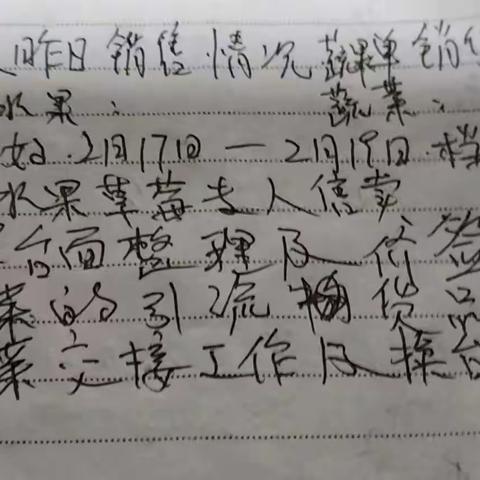 昨日销售情况 蔬果单销售
水果： 蔬菜：
如：2月17日—2月19日 档
水果草莓专人售卖
台面整理及价签
菜的引流物价
菜交接工作及换台